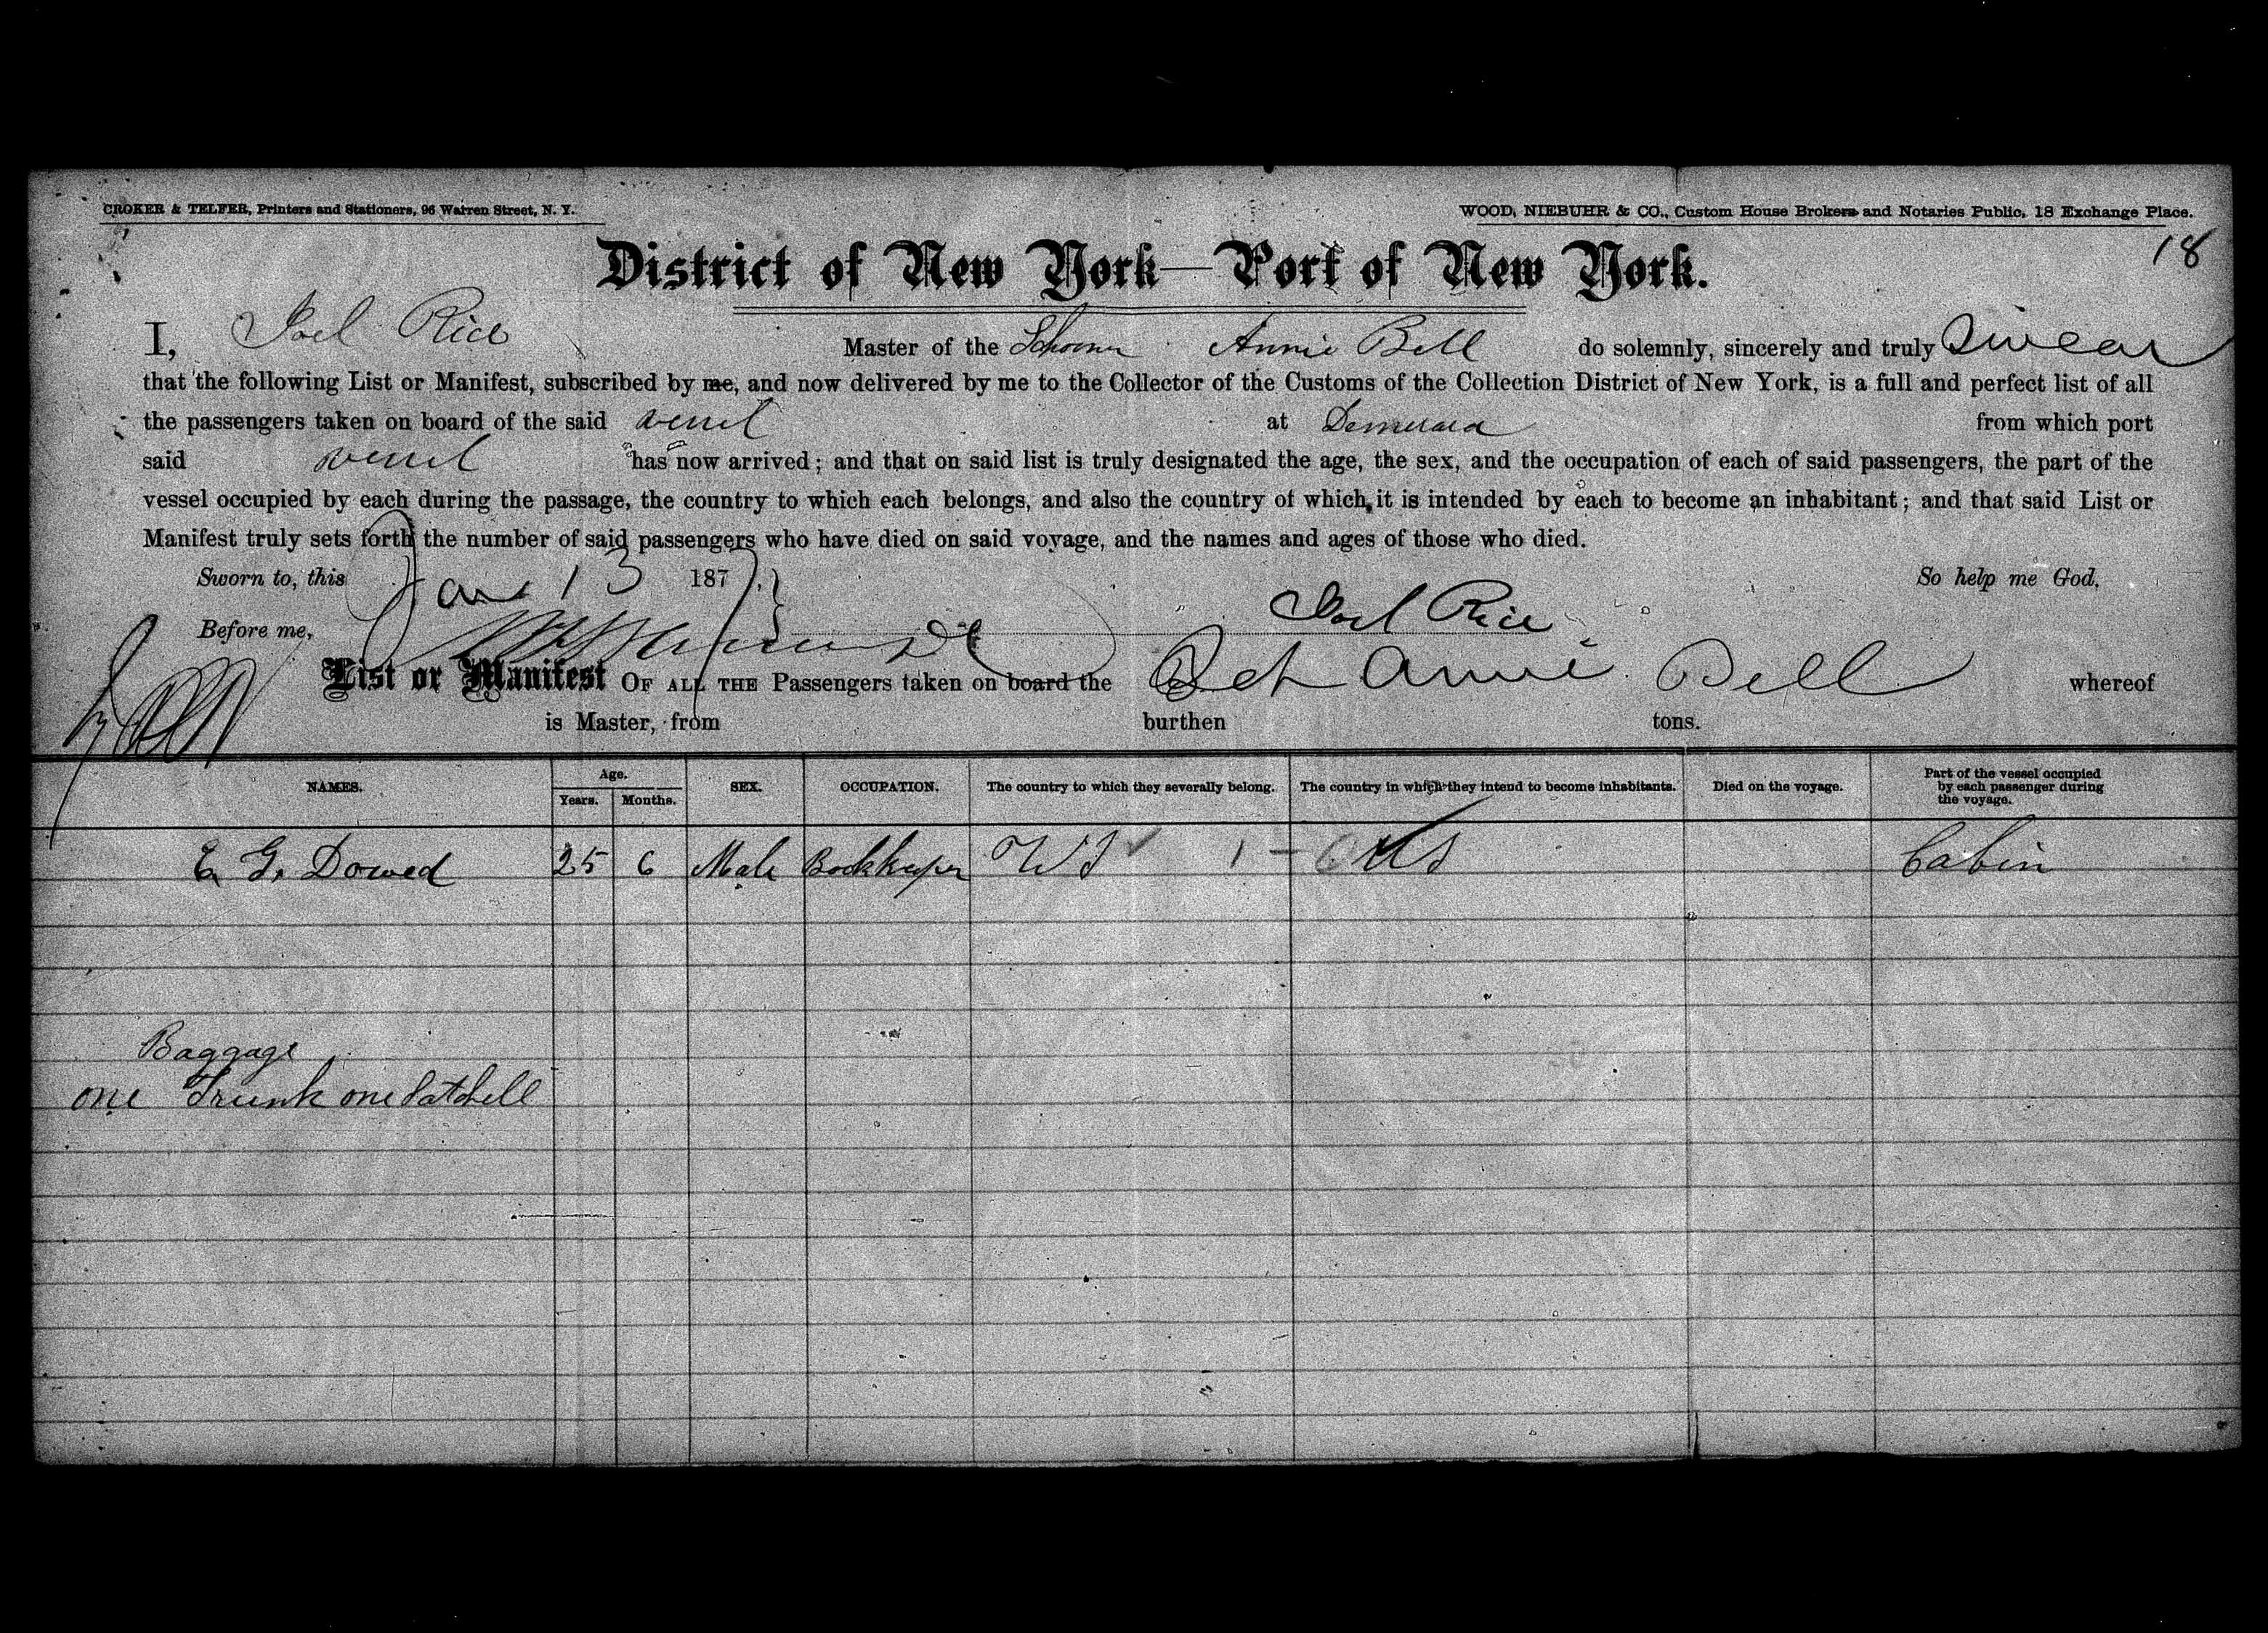 CROKER & TELFER, Printers and Stationers, 96 Warren Street, N. Y.
WOOD, NIEBUHR & CO., Custom House Brokers and Notaries Public, 18 Exchange Place.
18
District of New York—Port of New York.
I, Joel Rice Master of the Schooner Annie Bell do solemnly, sincerely and truly Swear
that the following List or Manifest, subscribed by me, and now delivered by me to the Collector of the Customs of the Collection District of New York, is a full and perfect list of all
the passengers taken on board of the said vessel at Demerara from which port
said vessel has now arrived; and that on said list is truly designated the age, the sex, and the occupation of each of said passengers, the part of the
vessel occupied by each during the passage, the country to which each belongs, and also the country of which it is intended by each to become an inhabitant; and that said List or
Manifest truly sets forth the number of said passengers who have died on said voyage, and the names and ages of those who died.
Sworn to, this Jan 13 1877. So help me God,
Before me, Joel Rice
List or Manifest OF ALL THE Passengers taken on board the Sch Annie Bell whereof
is Master, from burthen tons.
NAMES. Age. Years. Months. SEX. OCCUPATION. The country to which they severally belong. The country in which they intend to become inhabitants. Died on the voyage. Part of the vessel occupied by each passenger during the voyage.
E. G. Dowed 25 6 Male Bookkeeper W I 1 U S Cabin
Baggage
one Trunk one Satchell